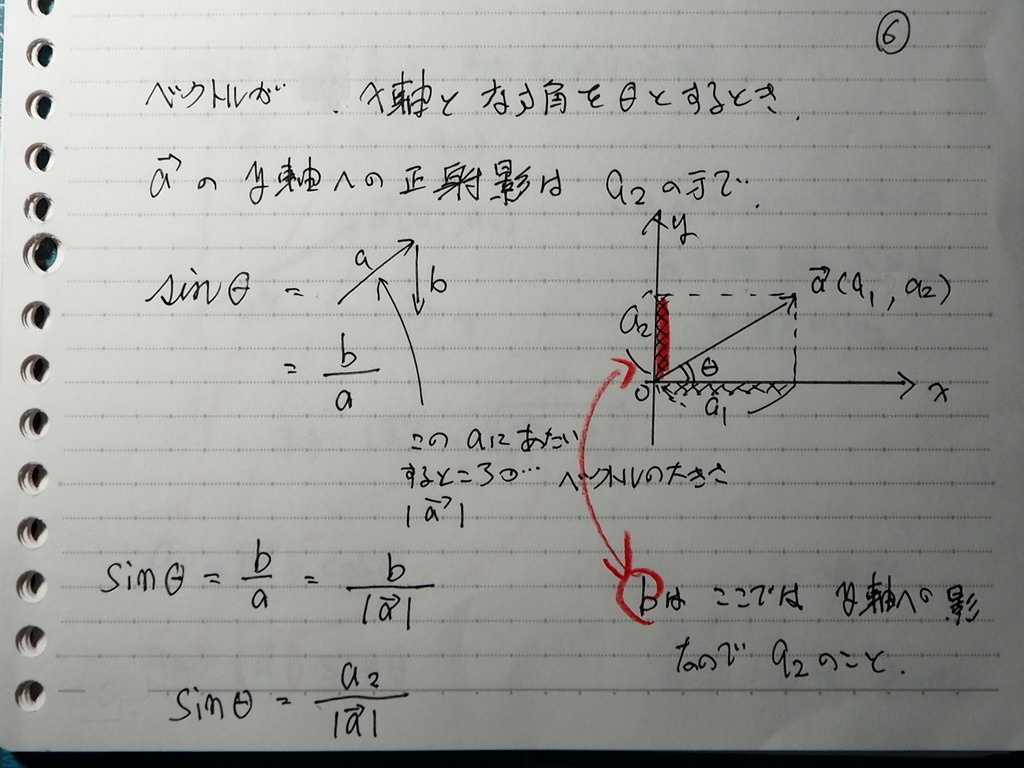 ⑥
ベクトルが x軸となす角をθとするとき.
a→のy軸への正射影は a2の示で.
sinθ = a b
= b/a
この aにあたい
するところの… ベクトルの大きさ
|a→|
y
a→(a1, a2)
a2
θ
O
a1
x
sinθ = b/a = b/|a→|
bは ここでは y軸への影
なので a2のこと.
sinθ = a2/|a→|